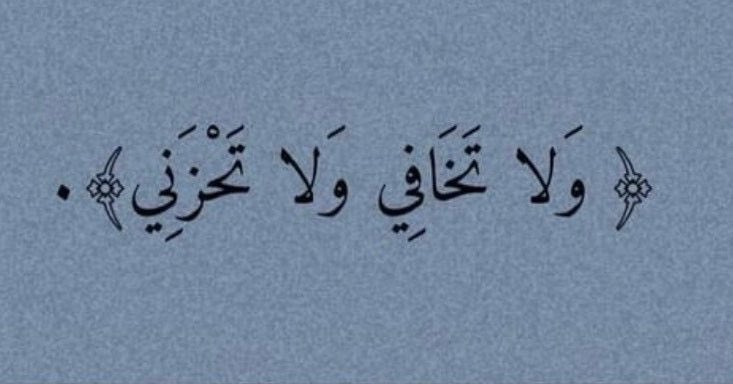 ﴿ وَلا تَخَافِي وَلا تَحْزَنِي﴾ .